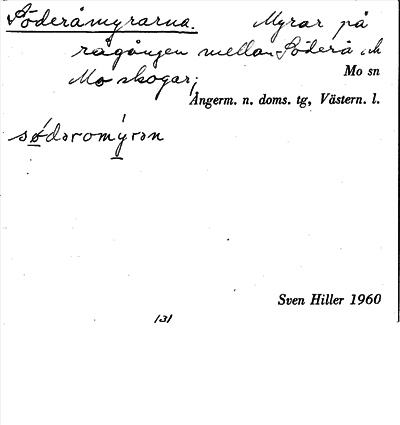 Söderåmyrarna. Myrar på
rågången mellan Söderå och
Mo skogar; Mo sn
Ångerm. n. doms. tg, Västern. l.
sǿdəromýrən
Sven Hiller 1960
131